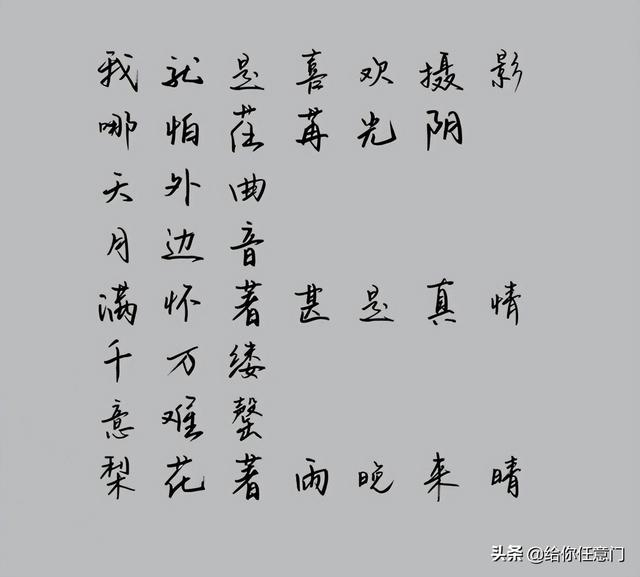 我就是喜欢摄影
哪怕荏苒光阴
天外曲
月边音
满怀著甚是真情
千万缕
意难罄
梨花著雨晚来晴
头条 @给你任意门